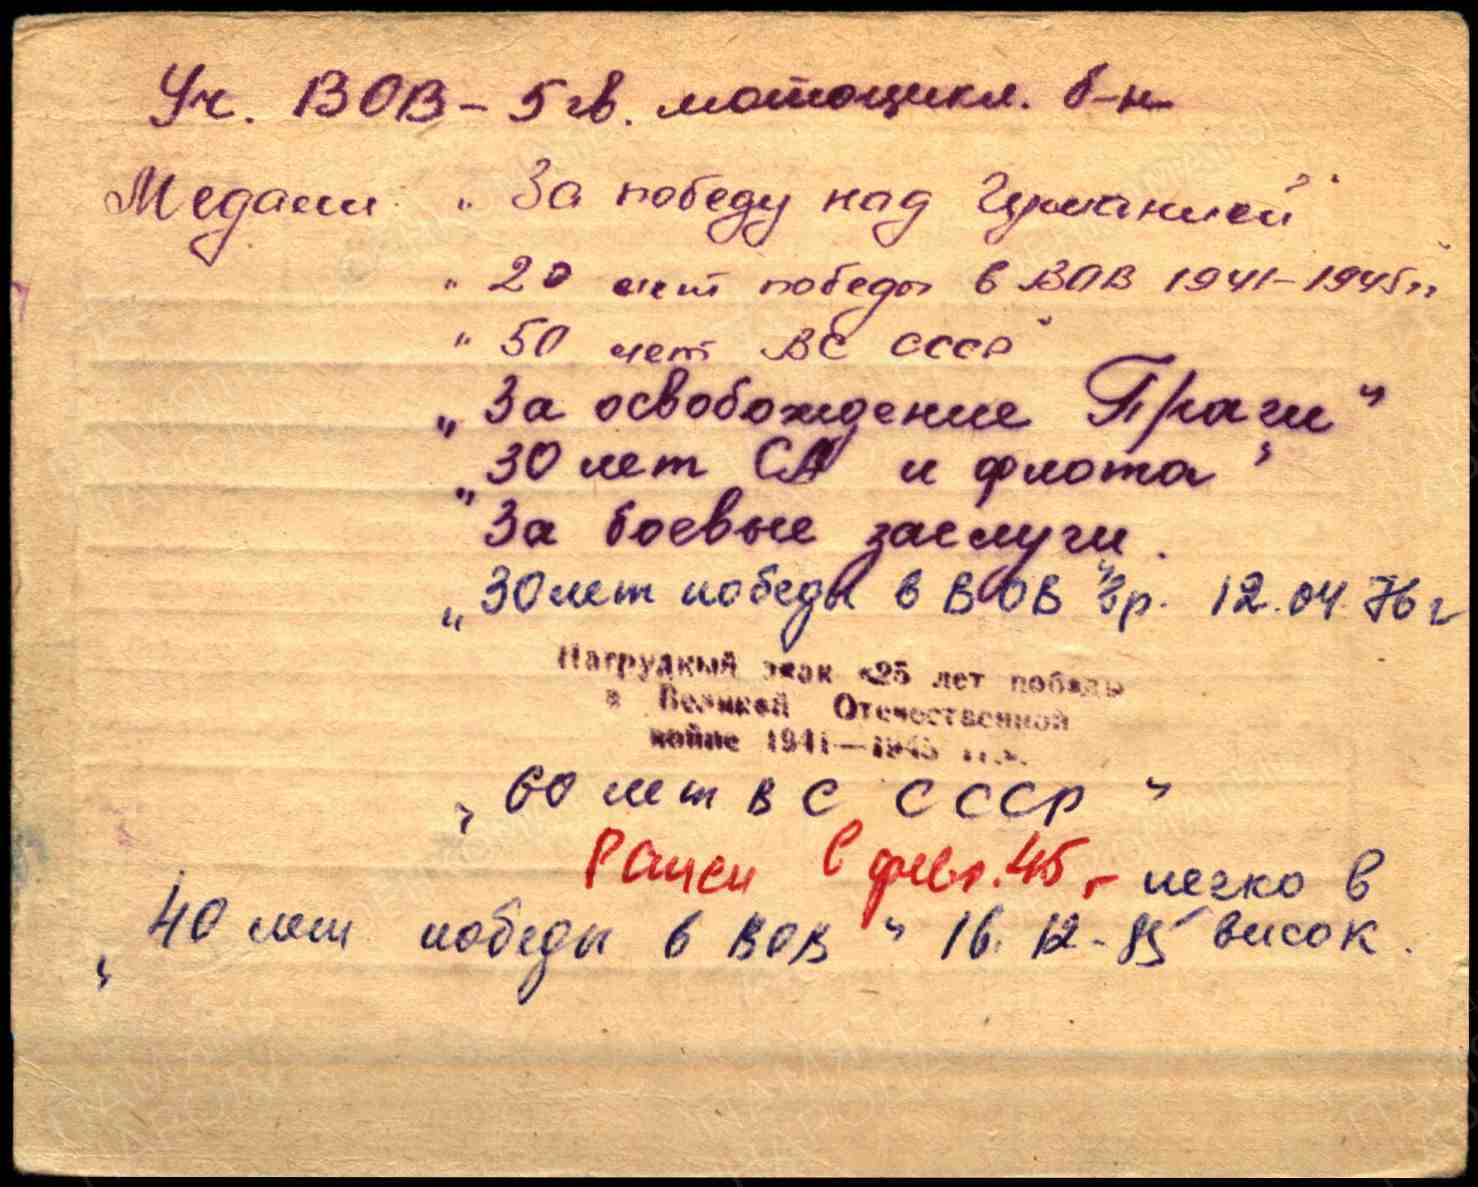 Уч. ВОВ – 5 гв. мотоцикл. б-н
Медали „За победу над Германией"
„20 лет победы в ВОВ 1941–1945"
„50 лет ВС СССР"
„За освобождение Праги"
„30 лет СА и флота"
„За боевые заслуги.
„30 лет победы в ВОВ" вр. 12.04.76 г
Нагрудный знак «25 лет победы
в Великой Отечественной
войне 1941—1945 гг.».
„60 лет ВС СССР"
Ранен в февр. 45, – легко в
„40 лет победы в ВОВ" 16.12-85 висок.